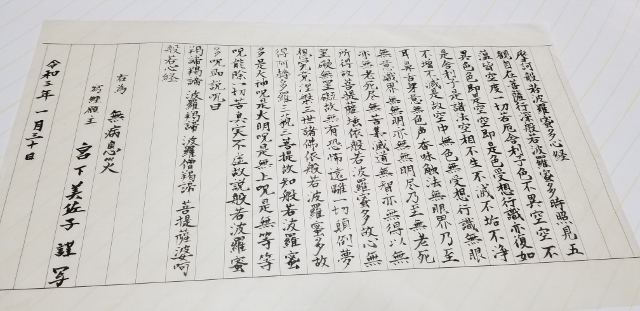 摩訶般若波羅蜜多心経
観自在菩薩行深般若波羅蜜多時照見五
蘊皆空度一切苦厄舎利子色不異空空不
異色色即是空空即是色受想行識亦復如
是舎利子是諸法空相不生不滅不垢不浄
不増不減是故空中無色無受想行識無眼
耳鼻舌身意無色声香味触法無眼界乃至
無意識界無無明亦無無明尽乃至無老死
亦無老死尽無苦集滅道無智亦無得以無
所得故菩提薩埵依般若波羅蜜多故心無
罣礙無罣礙故無有恐怖遠離一切顛倒夢
想究竟涅槃三世諸佛依般若波羅蜜多故
得阿耨多羅三藐三菩提故知般若波羅蜜
多是大神呪是大明呪是無上呪是無等等
呪能除一切苦真実不虚故説般若波羅蜜
多呪即説呪曰
羯諦羯諦 波羅羯諦 波羅僧羯諦 菩提薩婆訶
般若心経
右為 無病息災
願主 宮下美佐子 謹写
令和三年一月三十日